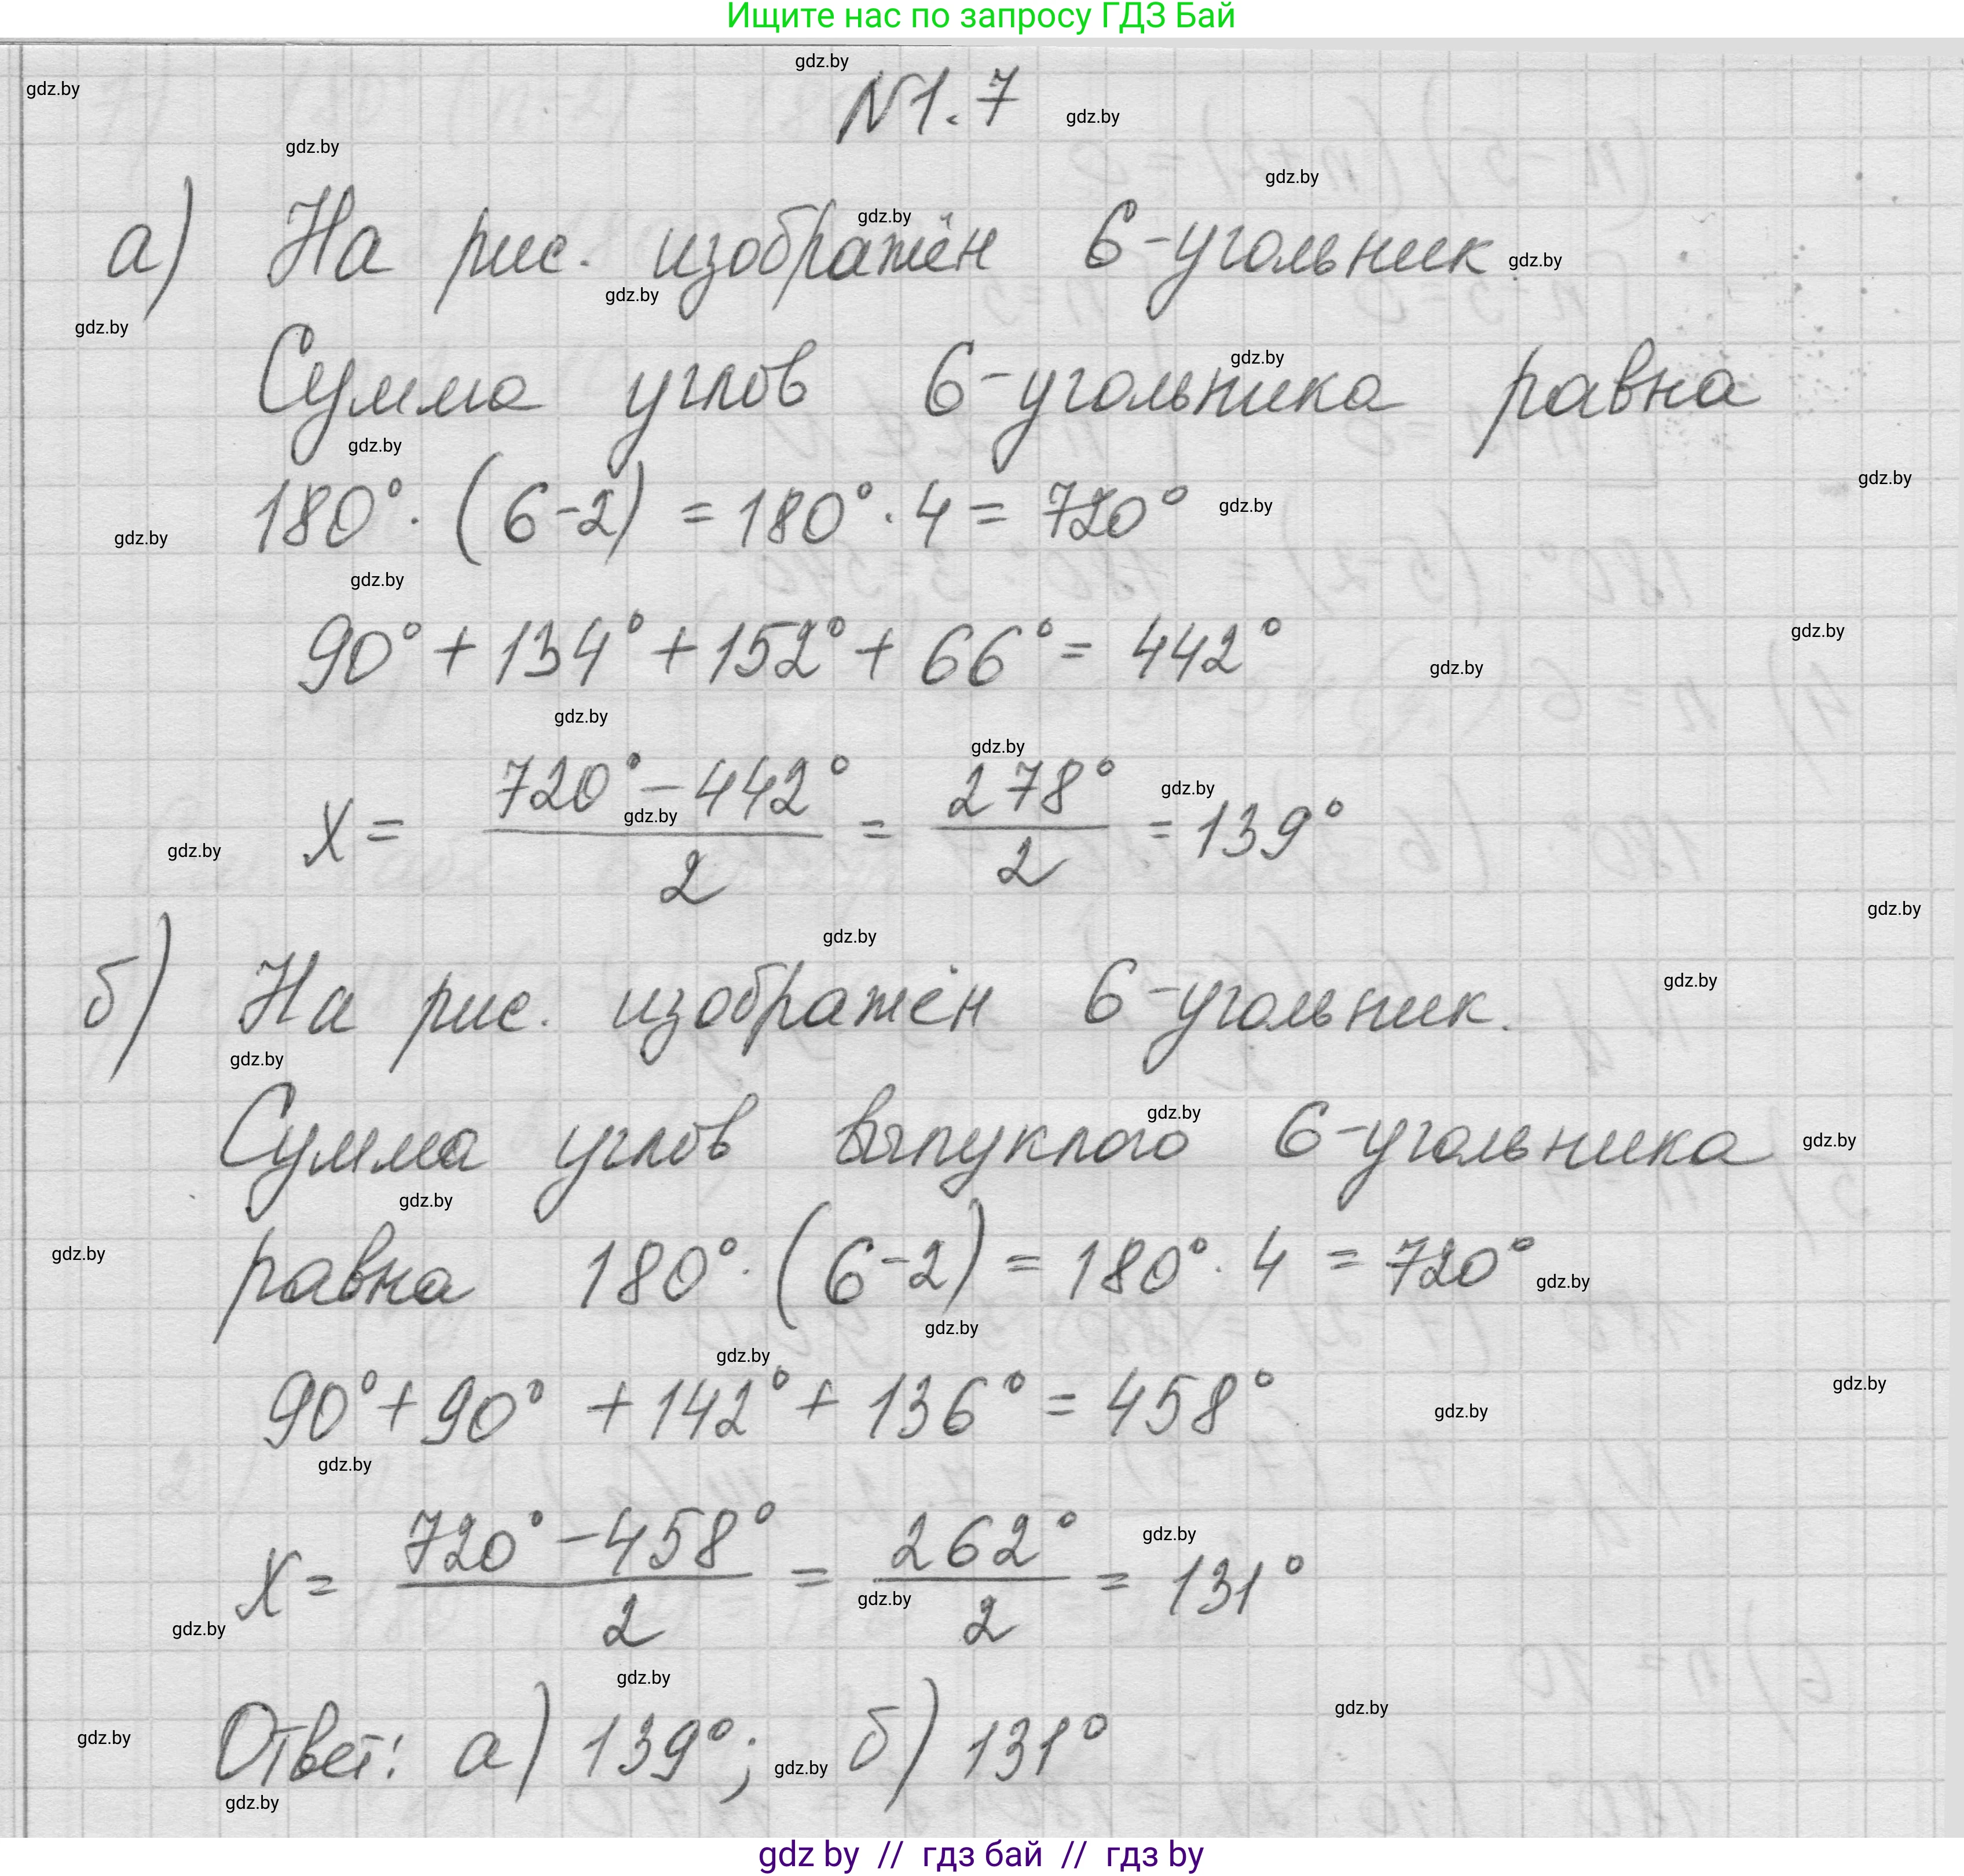 Ищите нас по запросу ГДЗ Бай
N1.7
а) На рис. изображён 6-угольник.
Сумма углов 6-угольника равна
180° · (6-2) = 180° · 4 = 720°
90° + 134° + 152° + 66° = 442°
x = (720° - 442°)/2 = 278°/2 = 139°
б) На рис. изображён 6-угольник.
Сумма углов выпуклого 6-угольника
равна 180° · (6-2) = 180° · 4 = 720°
90° + 90° + 142° + 136° = 458°
x = (720° - 458°)/2 = 262°/2 = 131°
Ответ: а) 139°; б) 131°
gdz by // гдз бай // гдз by